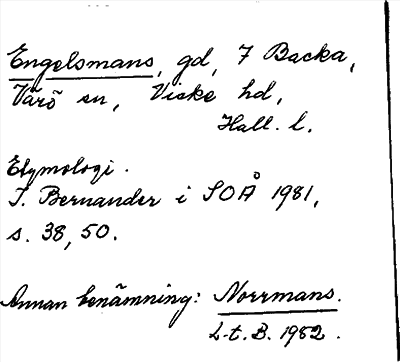 Engelsmans, gd, 7 Backa,
Värö sn, Viske hd,
Hall. l.
Etymologi.
I. Bernander i SOÅ 1981,
s. 38, 50.
Annan benämning: Norrmans.
L-t. B. 1982.